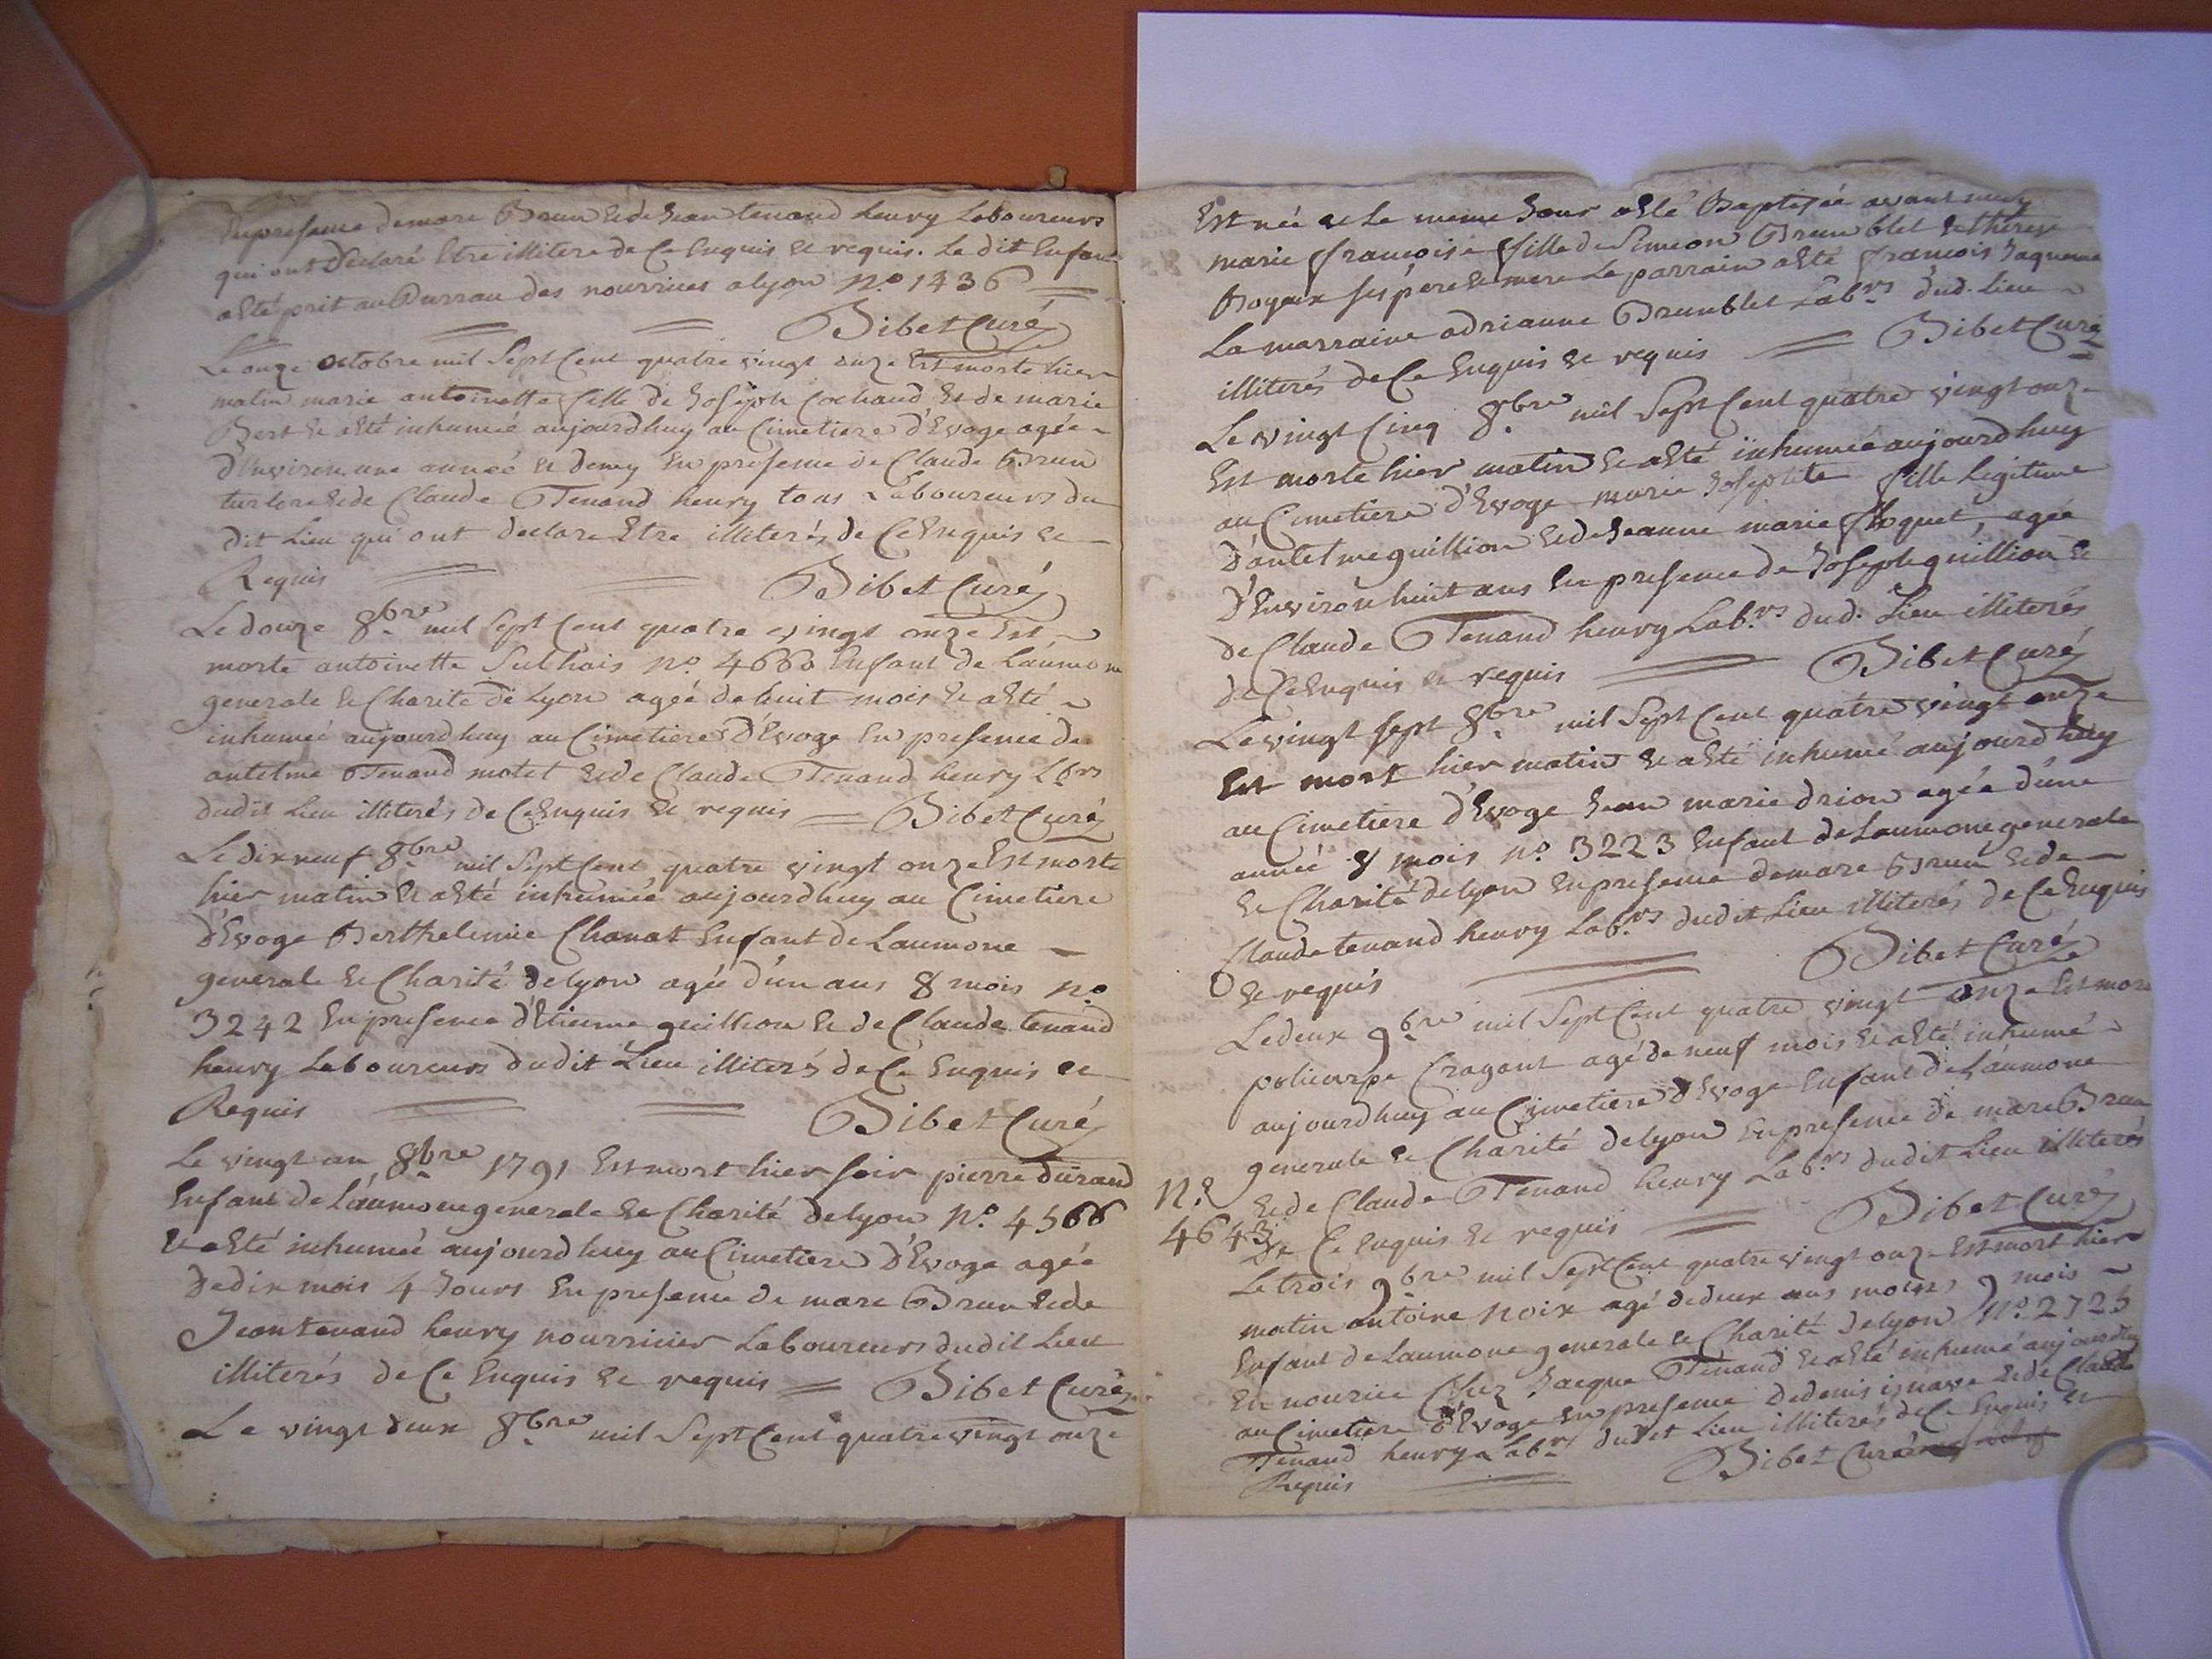 En presence de marc Brun et de Jean tenand henry Laboureurs
qui ont Declaré Etre illiteré de Ce Enquis et requis. Le dit Enfant
a Eté prit au Burrau des nourrices a lyon N.o 1436
Bibet Curé
Le onze octobre mil Sept Cent quatre vingt onze Est morte hier
matin marie antoinette fille de Joseph Cochaud Et de marie
Bert et a Eté inhumée aujourdhuy au Cimetiere D'Evoge agée
d'Environ une année et demy En presence de Claude Brun
turlore et de Claude Tenand henry tous Laboureurs du
dit Lieu qui ont declare Etre illiterés de Ce Enquis et
Requis Bibet Curé
Le douze 8bre mil Sept Cent quatre vingt onze Est
morte antoinette no. 4660 Enfant de Laumone
generale et Charité de Lyon agée de huit mois et a Eté
inhumée aujourdhuy au Cimetiere D'Evoge En presence de
antelme Tenand motet et de Claude Tenand henry Lbrs
dudit Lieu illiterés de Ce Enquis et requis Bibet Curé
Le dix neuf 8bre mil Sept Cent quatre vingt onze Est morte
hier matin et a Eté inhumée aujourdhuy au Cimetiere
D'Evoge Berthelemie Chanat Enfant de Laumone
generale et Charité de lyon agée d'un ans 8 mois no
3242 En presence d'Etienne guillion et de Claude tenand
henry Laboureurs dudit Lieu illiterés de Ce Enquis et
Requis Bibet Curé
Le vingt un 8bre 1791 Est mort hier soir pierre durand
Enfant de Laumone generale et Charité de lyon N.o 4566
et a Eté inhumée aujourdhuy au Cimetiere D'Evoge agée
de dix mois 4 Jours En presence de marc Brun et de
Jean tenand henry nourricier Laboureurs dudit Lieu
illiterés de Ce Enquis et requis Bibet Curé
Le vingt deux 8bre mil Sept Cent quatre vingt onze
Est née et Le meme Jour a Eté Baptisée avant midy
marie françoise fille de Simeon Brunblet et therese
Bogaix ses pere et mere Le parrain a Eté françois Jaqueme
La marraine adrianne Brunblet Labrs dud. Lieu
illiterés de Ce Enquis et requis Bibet Curé
Le vingt Cinq 8bre mil Sept Cent quatre vingt onze
Est morte hier matin et a Eté inhumée aujourdhuy
au Cimetiere d'Evoge marie Josephte fille Legitime
d'antelme guillion et de Jeanne marie floquet, agée
d'Environ huit ans En presence de Joseph guillion et
de Claude Tenand henry Labrs dud. Lieu illiterés
de Ce Enquis et requis Bibet Curé
Le vingt sept 8bre mil Sept Cent quatre vingt onze
Est mort hier matin et a Eté inhumé aujourdhuy
au Cimetiere d'Evoge Jean marie drion agée d'une
année 8 mois no. 3223 Enfant de Laumone generale
et Charité de lyon En presence de marc Brun et de
Claude tenand henry Labrs dudit Lieu illiterés de Ce Enquis
et requis Bibet Curé
Le deux 9bre mil Sept Cent quatre vingt onze Est mort
policarpe Cragant agé de neuf mois et a Eté inhumé
aujourdhuy au Cimetiere d'Evoge Enfant de Laumone
generale et Charité de lyon En presence de marc Brun
N.o et de Claude Tenand henry Labrs dudit Lieu illiterés
4643 de Ce Enquis et requis Bibet Curé
Le trois 9bre mil Sept Cent quatre vingt onze Est mort hier
matin antoine noix agé de deux ans moins 9 mois
Enfant de Laumone generale et Charité de lyon No. 2725
En nourice Chez Jacque Tenand et a Eté inhumé aujourdhuy
au Cimetiere d'Evoge En presence de denis et de Claude
Tenand henry Labrs dudit Lieu illiterés de Ce Enquis et
Requis Bibet Curé